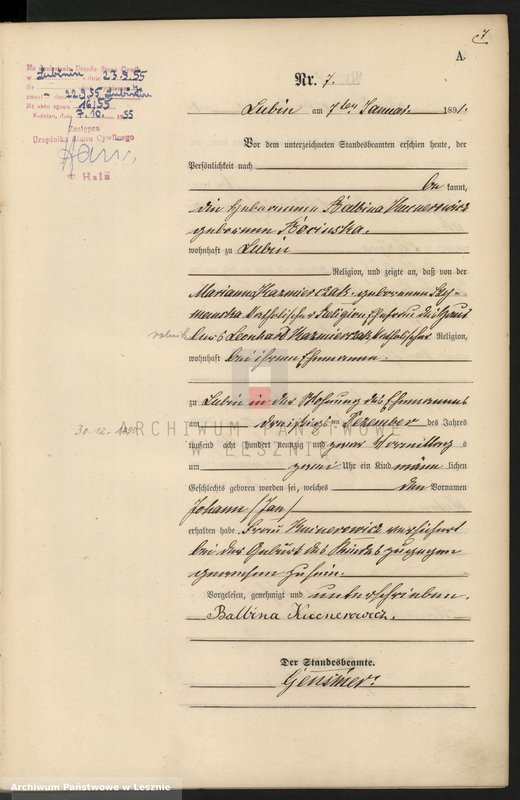 7
A.
Nr. 7.
Lubin am 7ten Januar. 1891.
Vor dem unterzeichneten Standesbeamten erschien heute, der
Persönlichkeit nach
be kannt,
die Hebeamme Balbina
geborenen
wohnhaft zu Lubin
Religion, und zeigte an, daß von der
Marianna Kazmierczak, geborenen
katholischer Religion Ehefrau des
Leonhard Kazmierczak katholischer Religion,
wohnhaft bei ihrem Ehemanne
zu Lubin in der Wohnung des Ehemannes
am dreißigsten Dezember des Jahres
tausend acht hundert neunzig und zwar Vormittag s
um zwei Uhr ein Kind männ lichen
Geschlechts geboren worden sei, welches den Vornamen
Johann /Jan/
erhalten habe. Frau versichert
bei der Geburt des Kindes zugegen
gewesen zu sein.
Vorgelesen, genehmigt und unterschrieben.
Balbina
Der Standesbeamte.
Urzędu Stanu Cywil.
w Lubiniu dnia 23.9.55
Nr
zmarł 22.9.55 Lubiniu
Nr aktu zgonu 16/55
7.10.55
Zastępca
Urzędnika Stanu Cywilnego
rolnik
30.12.1890
ARCHIWUM PAŃSTWOWE
W LESZNIE
Archiwum Państwowe w Lesznie